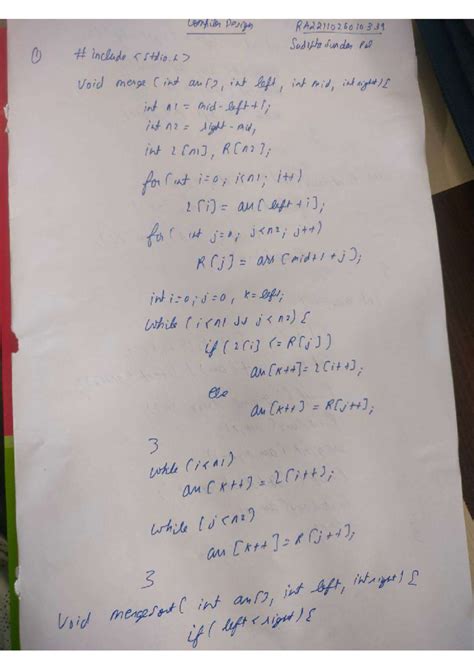 Compiler Design
RA2211026010339
Sudipto Sundar Pal
① #include <stdio.h>
void merge (int arr[], int left, int mid, int right) {
int n1 = mid-left+1;
int n2 = right-mid;
int L[n1], R[n2];
for (int i=0; i<n1; i++)
L[i] = arr[left+i];
for (int j=0; j<n2; j++)
R[j] = arr[mid+1+j];
int i=0, j=0, k=left;
while (i<n1 && j<n2) {
if (L[i] <= R[j])
arr[k++] = L[i++];
else
arr[k++] = R[j++];
}
while (i<n1)
arr[k++] = L[i++];
while (j<n2)
arr[k++] = R[j++];
}
void mergesort (int arr[], int left, int right) {
if (left < right) {